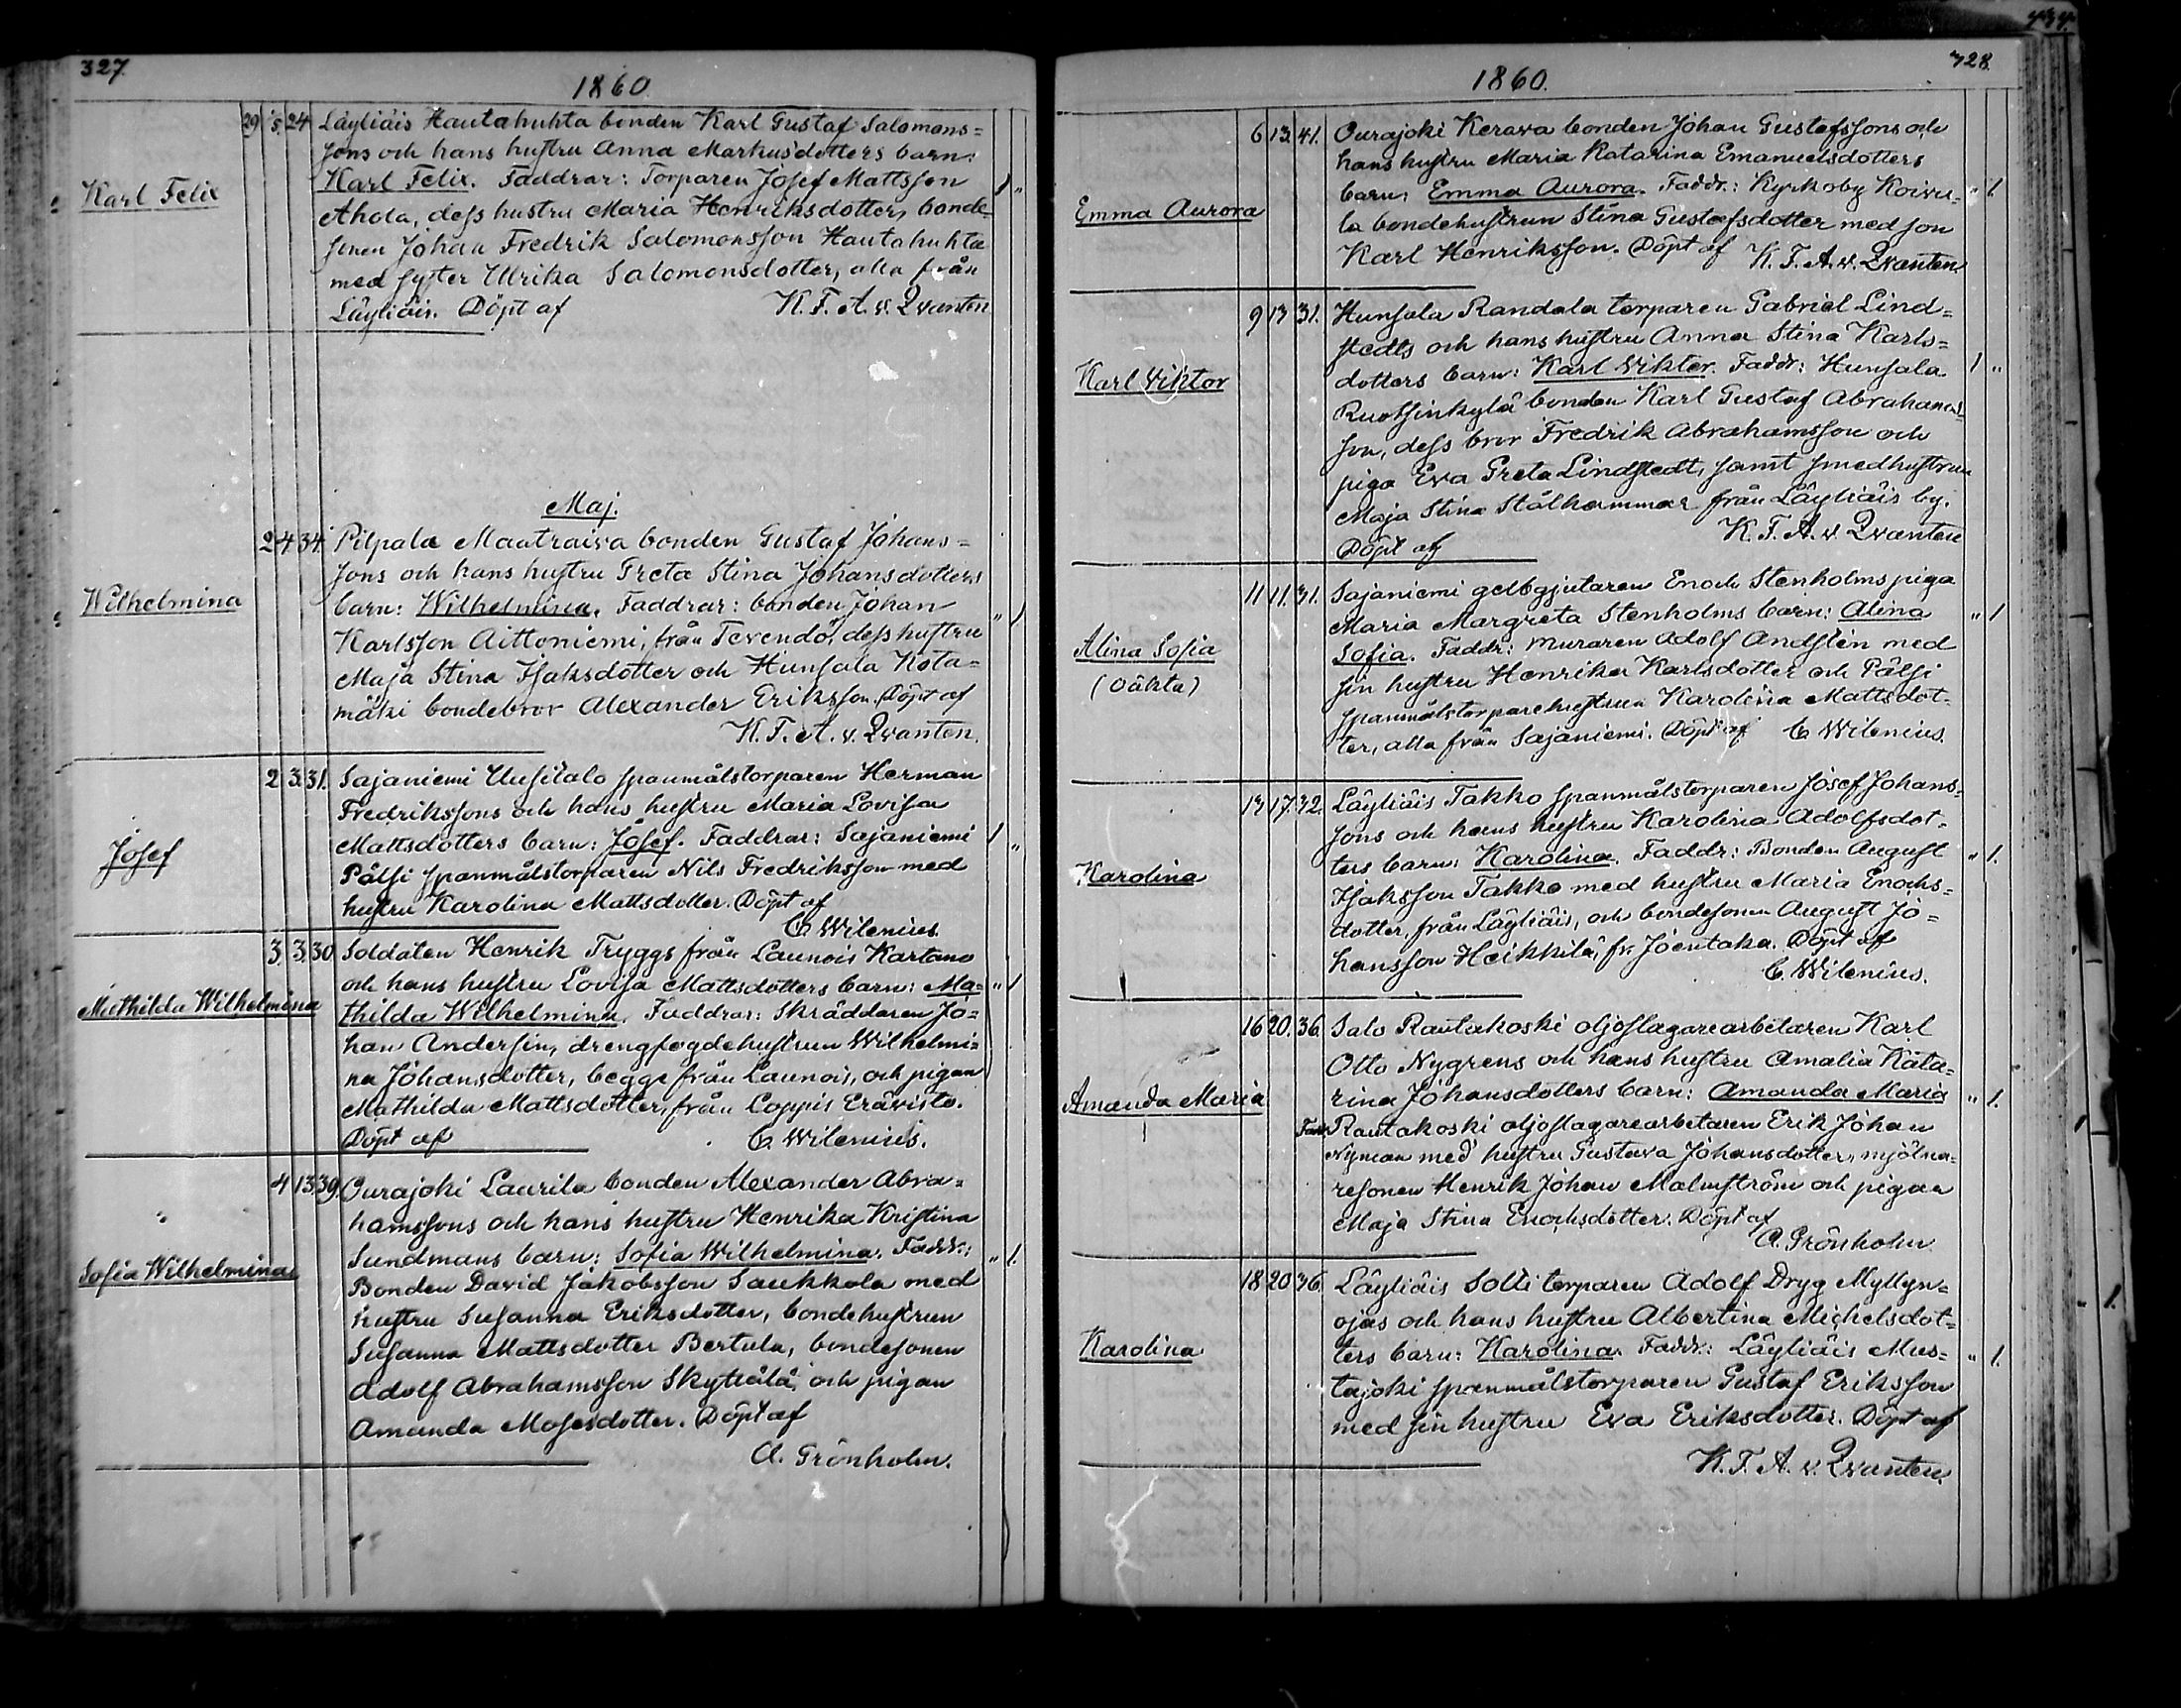 327.
1860
Karl Felix
29 /5. 24 Läyliäis Hautahuhta bonden Karl Gustaf Salomons=
sons och hans hustru Anna Markusdotters barn:
Karl Felix. Faddrar: Torparen Josef Mattsson
Ahola, dess hustru Maria Henriksdotter, bonde=
sonen Johan Fredrik Salomonsson Hautahuhta
med syster Ulrika Salomonsdotter, alla från
Läyliäis. Döpt af K. F. A. v. Qvanten
1 "
Maj.
Wilhelmina
2 4 34. Pilpala Mantraiva bonden Gustaf Johans=
sons och hans hustru Greta Stina Johansdotters
barn: Wilhelmina. Faddrar: bonden Johan
Karlsson Aittoniemi, från Tevendö, dess hustru
Maja Stina Isaksdotter och Hunsala Kota=
mäki bondebror Alexander Eriksson. Döpt af
K. F. A. v. Qvanten.
" 1
Josef
2 3. 31. Sajaniemi Uusitalo spanmålstorparen Herman
Fredrikssons och hans hustru Maria Lovisa
Mattsdotters barn: Josef. Faddrar: Sajaniemi
Pälsi spanmålstorparen Nils Fredriksson med
hustru Karolina Mattsdotter. Döpt af
C. Wilenius.
1 "
Mathilda Wilhelmina
3. 3. 30 Soldaten Henrik Tryggs från Launois Kartano
och hans hustru Lovisa Mattsdotters barn: Ma=
thilda Wilhelmina. Faddrar: Skräddaren Jo=
han Andersin, drengfogdehustrun Wilhelmi=
na Johansdotter, begge från Launois, och pigan
Mathilda Mattsdotter, från Loppis Erävisto.
Döpt af C. Wilenius.
" 1
Sofia Wilhelmina
4 13 39. Ourajoki Laurila bonden Alexander Abra=
hamssons och hans hustru Henrika Kristina
Sundmans barn: Sofia Wilhelmina. Faddr.:
Bonden David Jakobsson Saukkola med
hustru Susanna Eriksdotter, bondehustrun
Susanna Mattsdotter Bertula, bondesonen
Adolf Abrahamsson Skyttälä, och pigan
Amanda Mosesdotter. Döpt af
A. Grönholm.
" 1.
328.
1860.
Emma Aurora
6 13. 41. Ourajoki Kerava bonden Johan Gustafssons och
hans hustru Maria Katarina Emanuelsdotters
barn: Emma Aurora. Faddr.: Kyrkoby Koivu=
la bondehustrun Stina Gustafsdotter med son
Karl Henriksson. Döpt af K. F. A. v. Qvanten
" 1.
Karl Viktor
9 13 31. Hunsala Randala torparen Gabriel Lind=
stedts och hans hustru Anna Stina Karls=
dotters barn: Karl Viktor. Faddr: Hunsala
Ruotsinkylä bonden Karl Gustaf Abrahams=
son, dess bror Fredrik Abrahamsson och
piga Eva Greta Lindstedt, samt smedhustrun
Maja Stina Stålhammar från Läyliäis by.
Döpt af K. F. A. v. Qvanten
1 "
Alina Sofia
(Oäkta)
11 11. 31. Sajaniemi gelbgjutaren Enoch Stenholms piga
Maria Margreta Stenholms barn: Alina
Sofia. Faddr: Muraren Adolf Andstén med
sin hustru Henrika Karlsdotter och Pälsi
spanmålstorparehustrun Karolina Mattsdot=
ter, alla från Sajaniemi. Döpt af C Wilenius.
" 1
Karolina
13 17. 32. Läyliäis Takko spanmålstorparen Josef Johans=
sons och hans hustru Karolina Adolfsdot=
ters barn: Karolina. Faddr: Bonden August
Isaksson Takko med hustru Maria Enochs=
dotter, från Läyliäis, och bondesonen August Jo=
hansson Heikkilä, fr. Joentaka. Döpt af
C. Wilenius.
" 1.
Amanda Maria
16 20. 36. Salo Rautakoski oljoslagarearbetaren Karl
Otto Nygrens och hans hustru Amalia Kata=
rina Johansdotters barn: Amanda Maria
Fadd. Rautakoski oljoslagarearbetaren Erik Johan
Nyman med hustru Gustava Johansdotter, mjölna=
resonen Henrik Johan Malmström och pigan
Maja Stina Enochsdotter. Döpt af
A. Grönholm
" 1.
Karolina
18 20 36. Läyliäis Solli torparen Adolf Dryg Myllyn=
ojas och hans hustru Albertina Michelsdot=
ters barn: Karolina. Faddr.: Läyliäis Mus=
tajoki spanmålstorparen Gustaf Eriksson
med sin hustru Eva Eriksdotter. Döpt af
K. F. A. v. Qvanten.
" 1.
" 1.